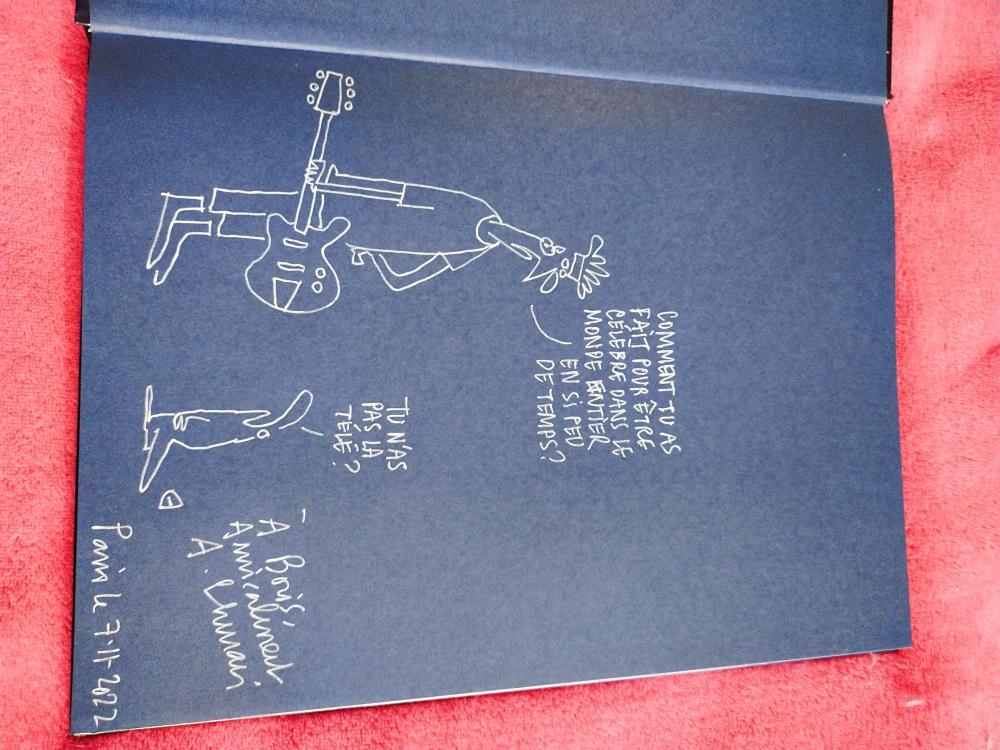 COMMENT TU AS
FAIT POUR ÊTRE
CELEBRE DANS LE
MONDE ENTIER
EN SI PEU
DE TEMPS?
TU N'AS
PAS LA
TELÉ?
- A Boris,
Amicalement
A.
Paris le 7-11-2022